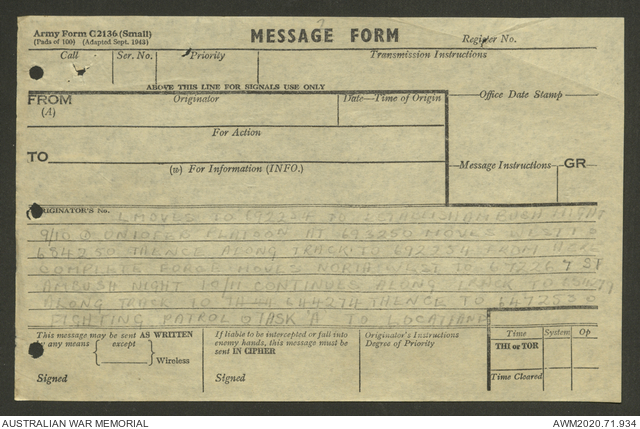 Army Form C2136 (Small)
(Pads of 100) (Adapted Sept. 1943)
MESSAGE FORM
Register No.
Call
Ser. No.
Priority
Transmission Instructions
ABOVE THIS LINE FOR SIGNALS USE ONLY
FROM
(A)
Originator
Date—Time of Origin
Office Date Stamp
For Action
TO
(w) For Information (INFO.)
Message Instructions
GR
ORIGINATOR'S No.
MOVES TO 692254 TO ESTABLISH AMBUSH NIGHT
9/10 PLATOON AT 693250 MOVES WEST TO
684250 THENCE ALONG TRACK TO 692254 FROM HERE
COMPLETE FORCE MOVES
AMBUSH NIGHT 10/11 CONTINUES ALONG TRACK TO
ALONG TRACK TO 644274 THENCE TO 647253
FIGHTING PATROL TASK A TO
This message may be sent AS WRITTEN
by any means
except
Wireless
Signed
If liable to be intercepted or fall into
enemy hands, this message must be
sent IN CIPHER
Signed
Originator's Instructions
Degree of Priority
Time
System
Op
THI or TOR
Time Cleared
AUSTRALIAN WAR MEMORIAL
AWM2020.71.934